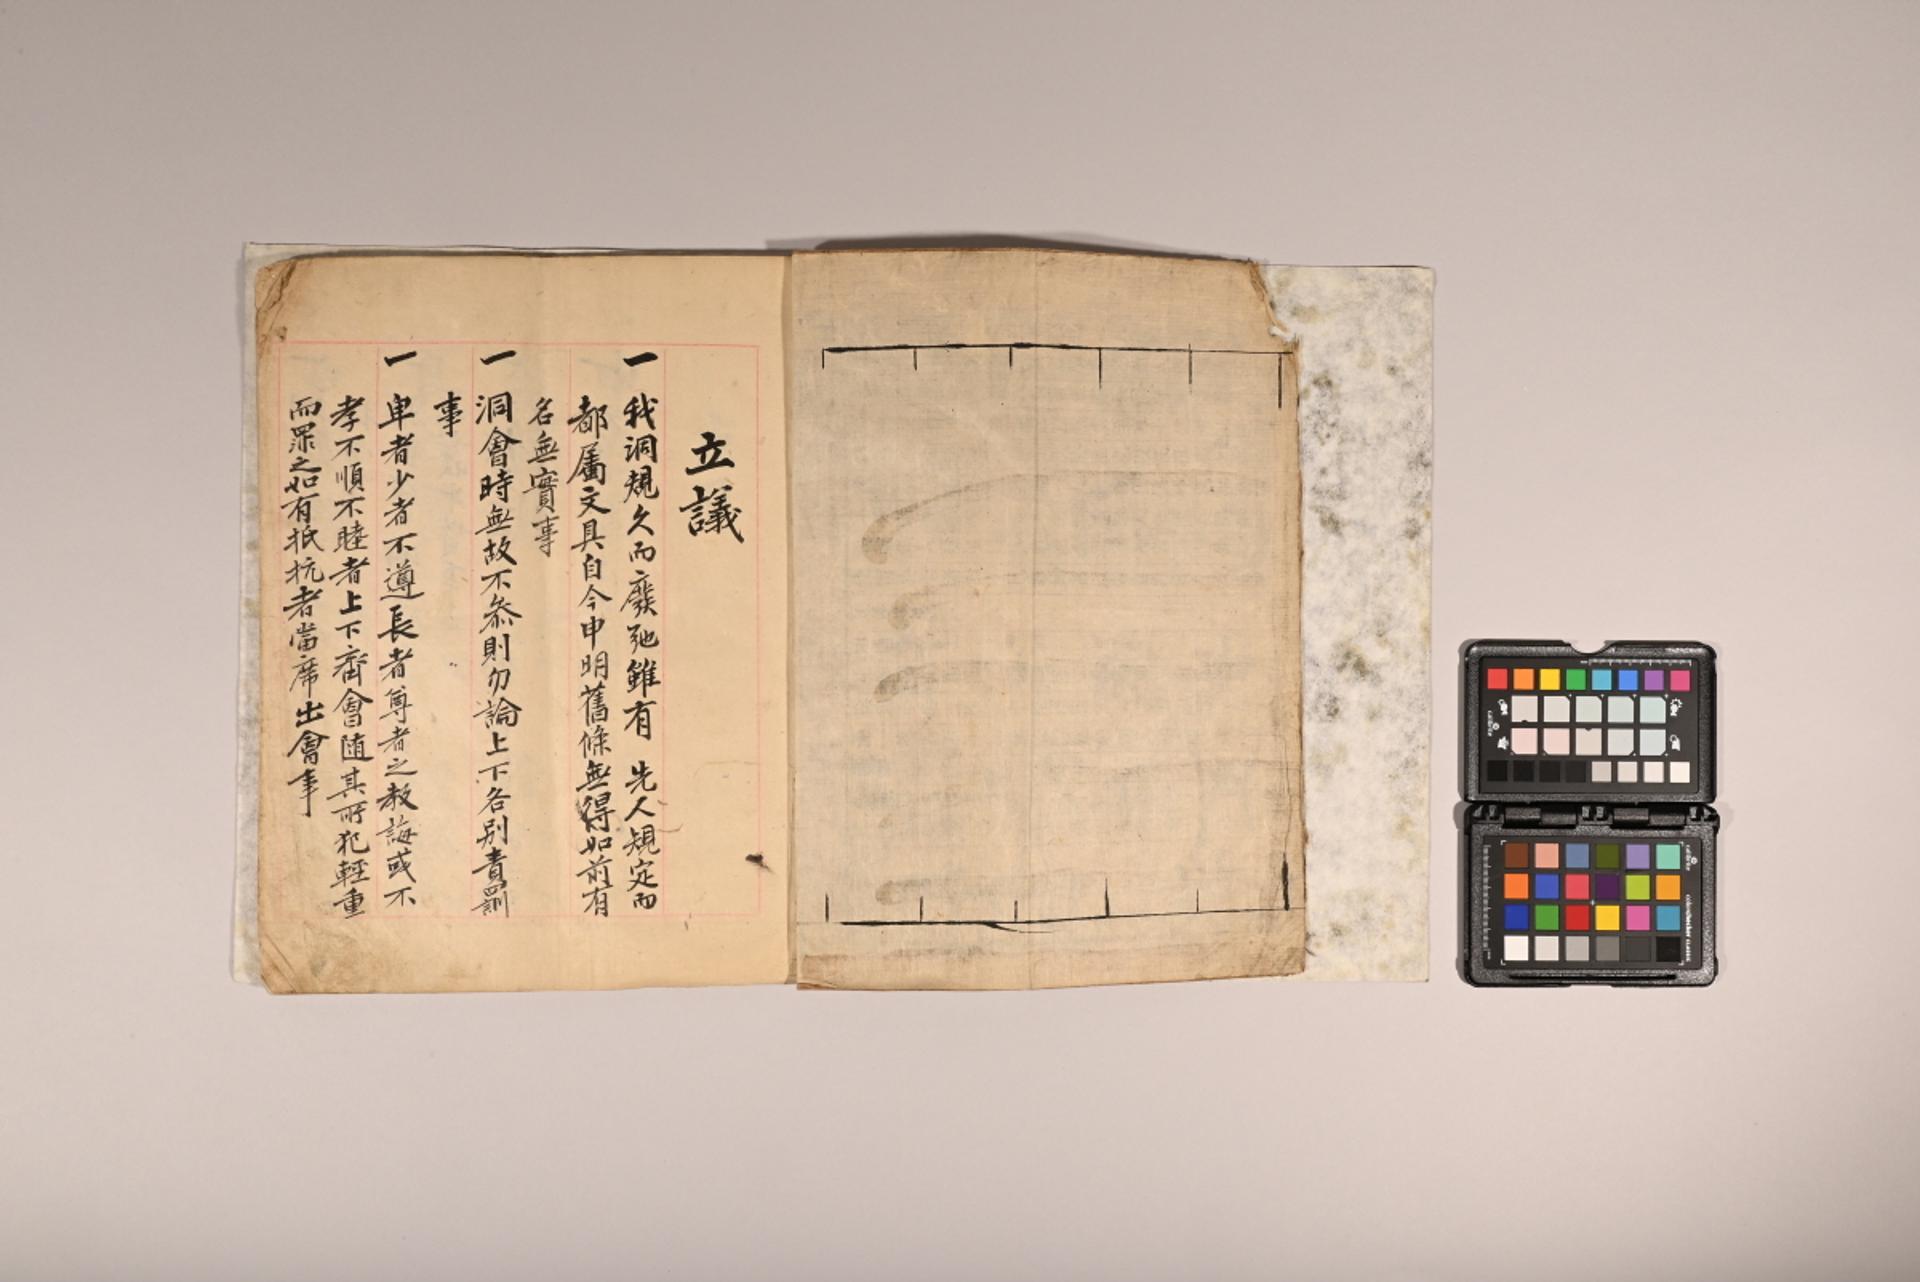 立議
一 我洞規久而廢弛雖有 先人規定而
都屬文具自今申明舊條無得如前有
名無實事
一 洞會時無故不叅則勿論上下各別責罰
事
一 卑者少者不遵長者尊者之教誨或不
孝不順不睦者上下齊會随其所犯輕重
而罪之如有抵抗者當席出會事